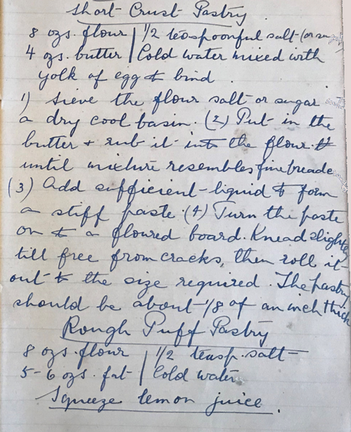 Short Crust Pastry.
8 ozs. flour | 1/2 teaspoonful salt (or sugar)
4 ozs. butter | Cold water mixed with
yolk of egg to bind.
1) Sieve the flour salt or sugar into
a dry cool basin. (2) Put in the
butter & rub it into the flour
until mixture resembles fine bread
(3) Add sufficient liquid to form
a stiff paste. (4) Turn the paste
on to a floured board. Knead slightly
till free from cracks, then roll it
out to the size required. The pastry
should be about 1/8 of an inch thick
Rough Puff Pastry
8 ozs. flour | 1/2 teasp. salt
5-6 ozs. fat | Cold water
Squeeze lemon juice.